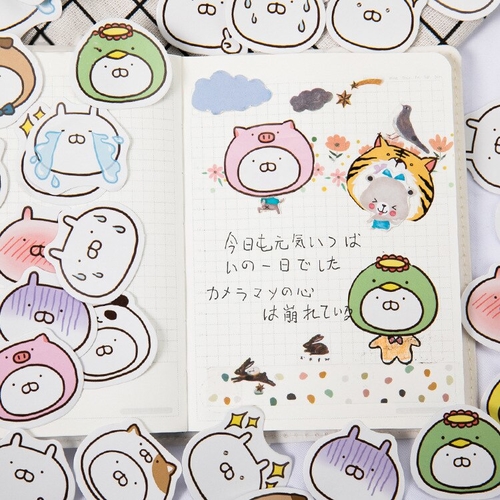 今日も元気いっぱ
いの一日でした
カメラマンの心
は崩れている